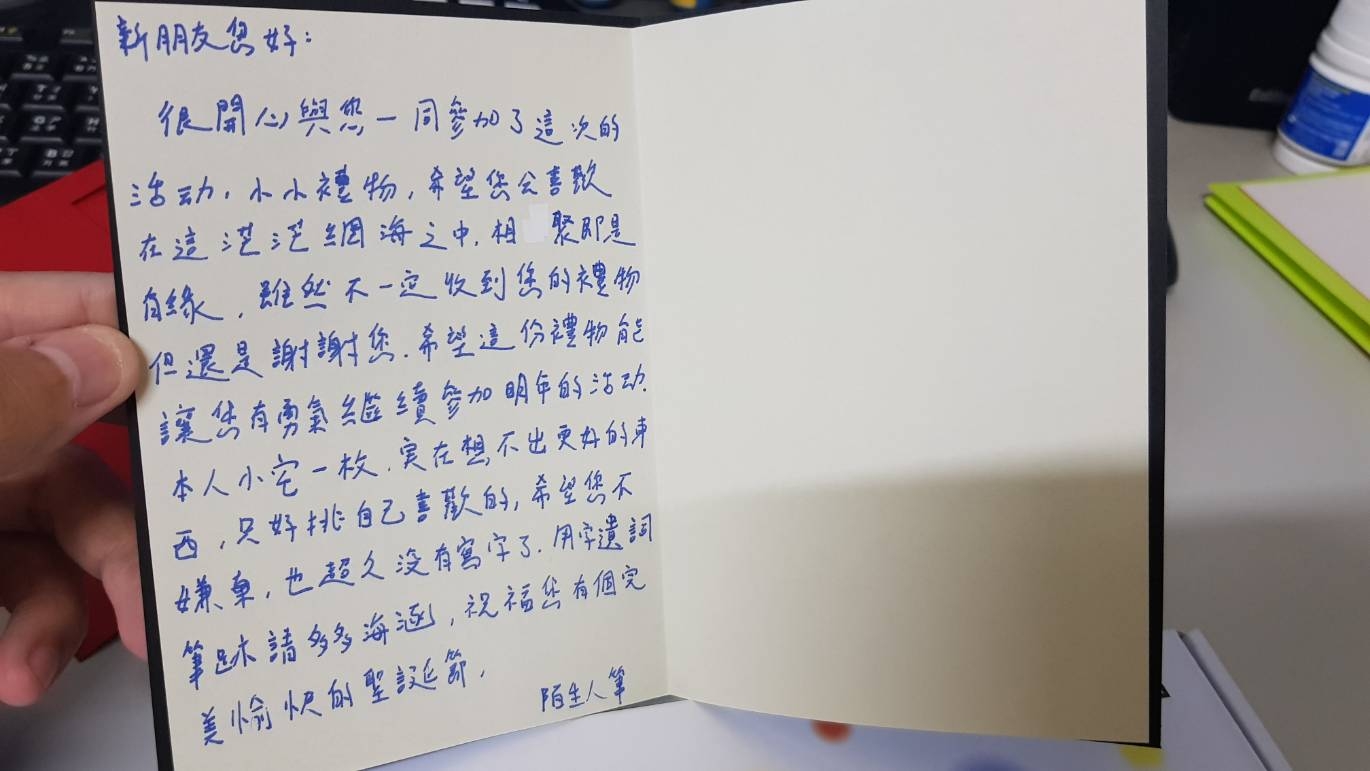 新朋友您好：
很開心與您一同參加了這次的
活动，小小禮物，希望您会喜歡
在這茫茫網海之中，相聚即是
有緣，雖然不一定收到您的禮物
但還是謝謝您．希望這份禮物能
讓您有勇氣繼續參加明年的活动．
本人小宅一枚．実在想不出更好的東
西，只好挑自己喜歡的，希望您不
嫌棄，也超久沒有寫字了．用字遺詞
筆跡請多多海涵，祝福您有個完
美愉快的聖誕節．
陌生人筆